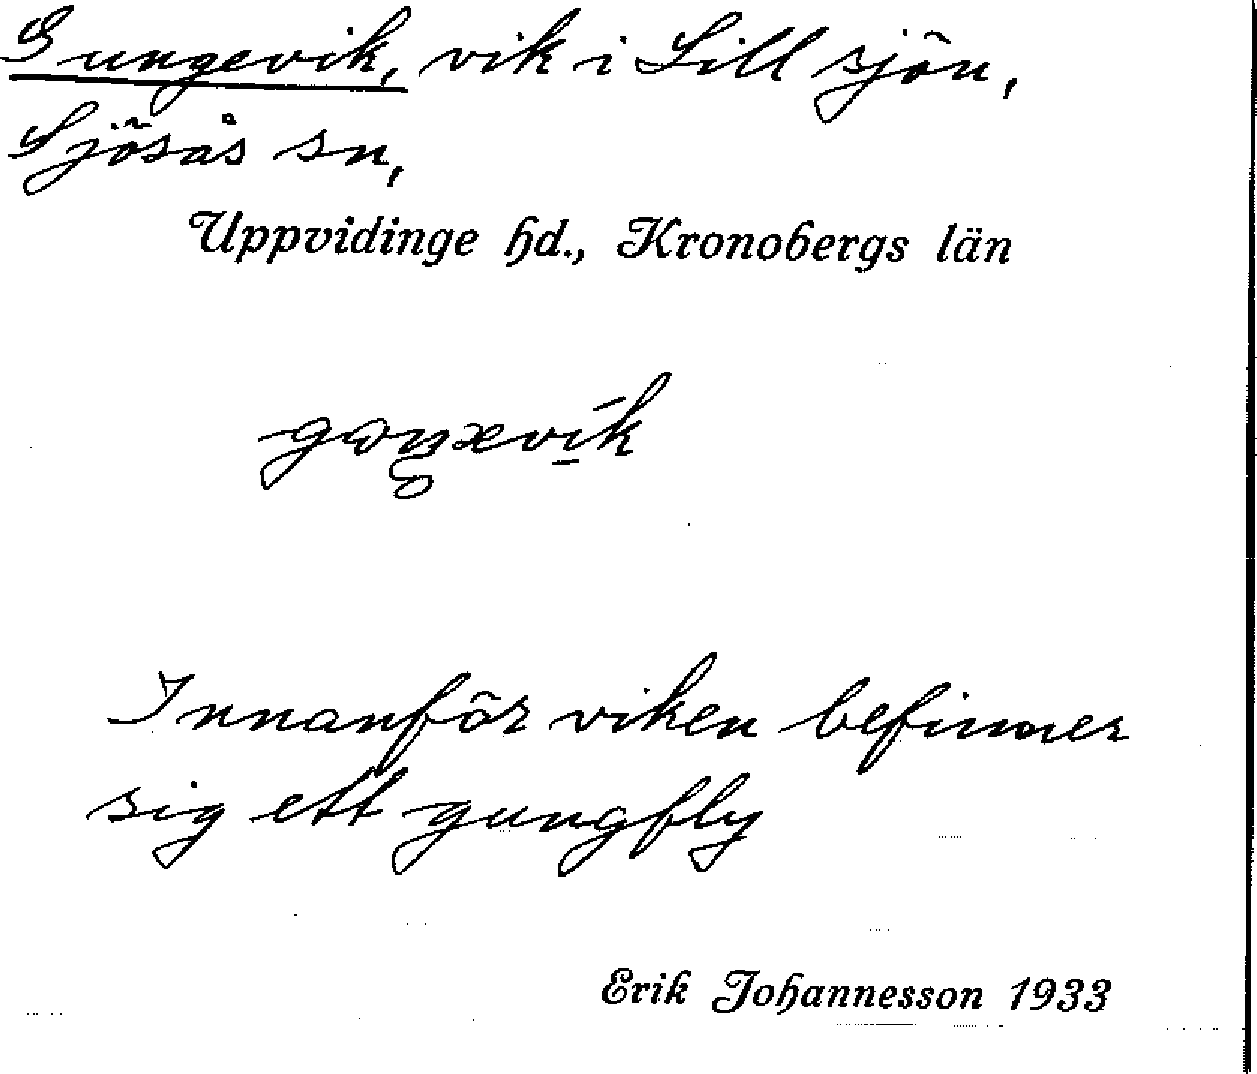 Gungevik, vik i Lill sjön,
Sjösås sn,
Uppvidinge hd., Kronobergs län
Innanför viken befinner
sig ett gungfly
Erik Johannesson 1933